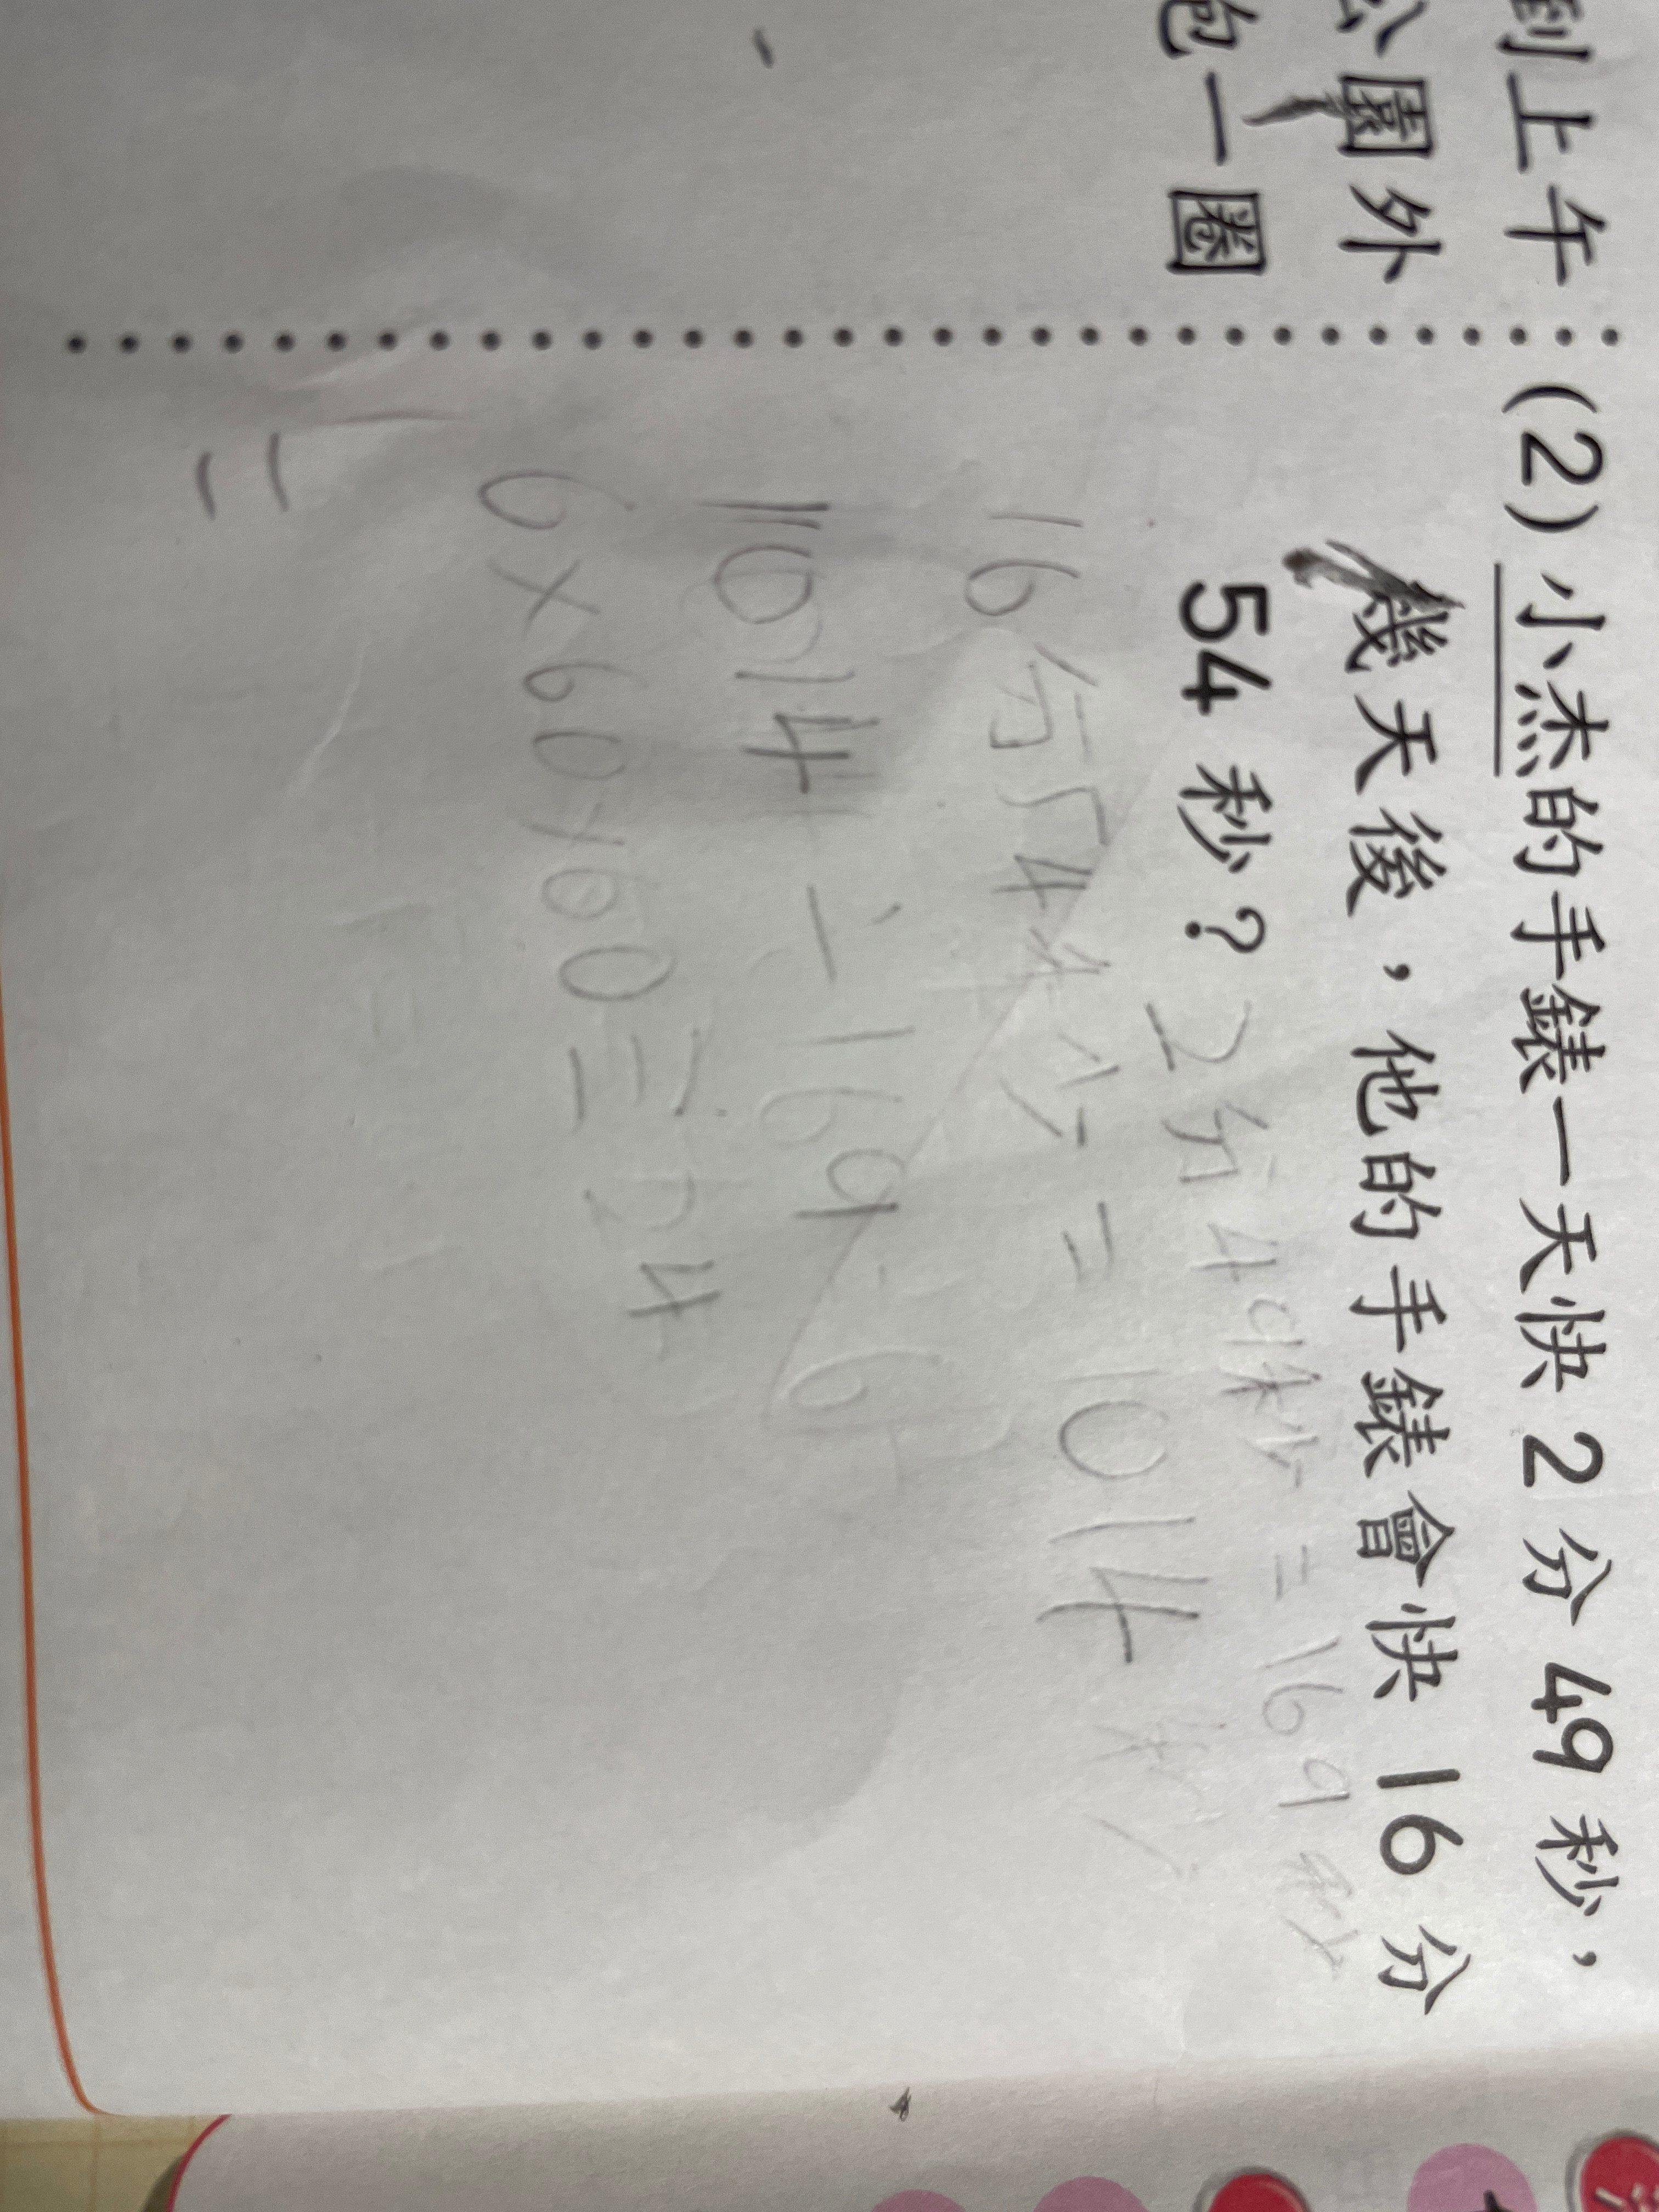 到上午
公園外
跑一圈
(2) 小杰的手錶一天快 2 分 49 秒，
幾天後，他的手錶會快 16 分
54 秒？
2分49秒=169秒
16分54秒=1014秒
1014÷169=6
6×60×60÷
24
=